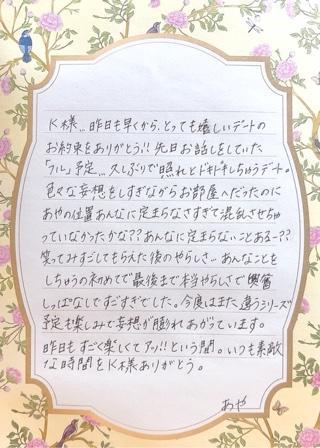 K様…昨日も早くから、とっても嬉しいデートの
お約束をありがとう!!先日お話しをしていた
「フル」予定…久しぶりで照れとドキドキしちゅうデート。
色々な妄想をしすぎながらお部屋へだったのに
あやの位置あんなに定まらなさすぎて混乱させちゃ
っていなかったかな??あんなに定まらないことある-??
笑ってみすごしてもらえた後のやらしさ…あんなことを
しちゅうの初めてで最後まで本当やらしさで興奮
しっぱなしですごすぎでした。今度はまた、違うシリーズ
予定も楽しみで妄想が膨れあがっています。
昨日もすごく楽しくてアッ!!という間。いつも素敵
な時間をK様ありがとう。
あや